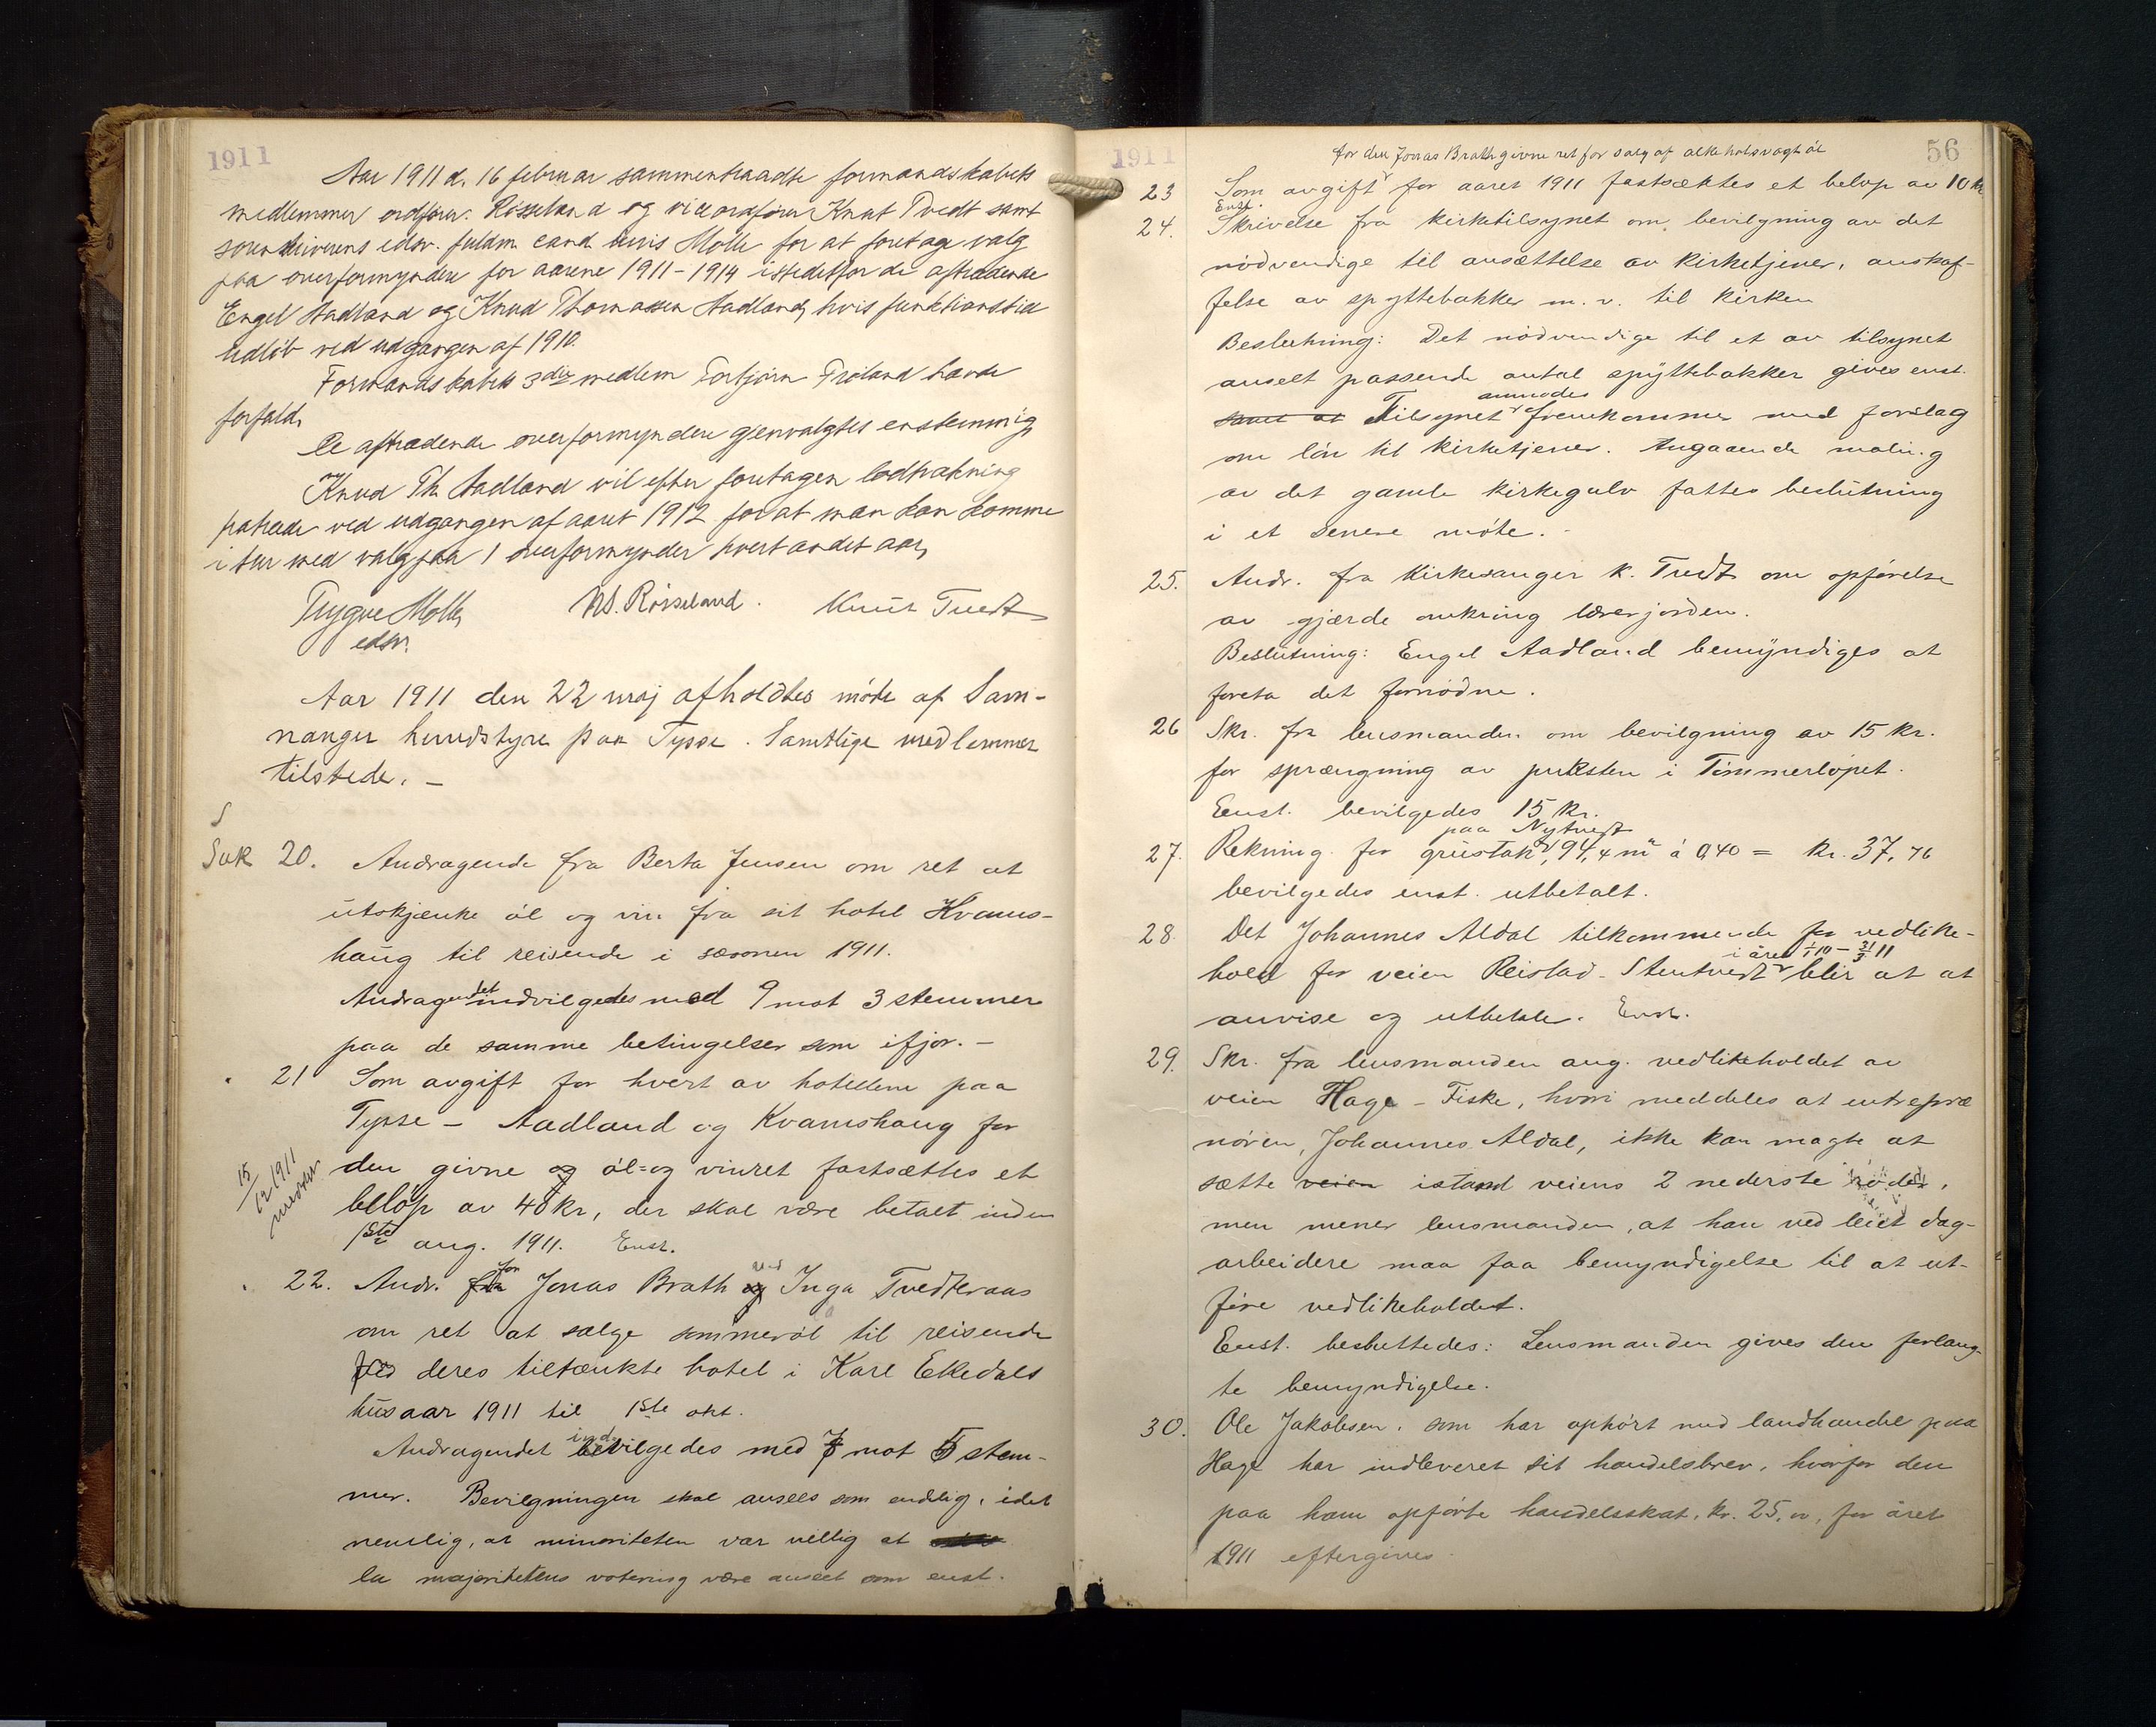 1911
Aar 1911 d. 16 februar sammentraadte formandskabets
medlemmer ordfører Røsseland og viceordfører Knut Tvedt samt
sorenskriverens edsv. fuldm. cand juris Molle for at foretage valg
paa overformyndere for aarene 1911-1914 istedetfor de aftrædende
Engel Aadland og Knud Thomassen Aadland, hvis funktionstid
udløb ved udgangen af 1910.
Formandskabets 3die medlem Torbjørn Frøland havde
forfald.
De aftrædende overformyndere gjenvalgtes enstemmig.
Knud Th. Aadland vil efter foretagen lodtrækning
fratræde ved udgangen af aaret 1912 for at man kan komme
i tur med valg paa 1 overformynder hvert andet aar.
Trygve Molle N. Røsseland. Knut Tvedt
edsv.
Aar 1911 den 22 maj afholdtes møte af Sam-
nanger herredstyre paa Tysse. Samtlige medlemmer
tilstede. -
Sak 20. Andragende fra Berta Jensen om ret at
utskjænke øl og vin fra sit hotel Kvams-
haug til reisende i sæsonen 1911.
Andragendet indvilgedes med 9 mot 3 stemmer
paa de samme betingelser som ifjor. -
21 Som avgift for hvert av hotellene paa
Tysse - Aadland og Kvamshaug for
den givne og øl= og vinret fastsættes et
beløp av 40 kr, der skal være betalt inden
1ste aug. 1911. Enst.
15/12 1911
22. Andr. fra for Jonas Brath og ved Inga Tvedteraas
om ret at sælge sommerøl til reisende
ved deres tiltænkte hotel i Karl Ekedals
hus aar 1911 til 1ste okt.
Andragendet indvilgedes med 7 mot 5 stem-
mer. Bevilgningen skal ansees som endelig, idet
nemlig, at minoriteten var villig at
la majoritetens votering være anseet som enst.
1911 56
for den Jonas Brath givne ret for salg af alkoholsvagt øl
23 Som avgift for aaret 1911 fastsættes et beløp av 10 kr
Enst.
24. Skrivelse fra kirketilsynet om bevilgning av det
nødvendige til ansættelse av kirketjener, anskaf-
felse av spyttebakker m. v. til kirken
Beslutning: Det nødvendige til et av tilsynet
anseet passende antal spyttebakker gives enst.
anmodes
samt at Tilsynet fremkomme med forslag
om løn til kirketjener. Angaaende maling
av det gamle kirkegulv fattes beslutning
i et senere møte. -
25. Andr. fra Kirkesanger K. Tvedt om opførelse
av gjærde omkring lærerjorden.
Beslutning: Engel Aadland bemyndiges at
foreta det fornødne.
26 Skr. fra lensmanden om bevilgning av 15 kr.
for sprængning av puksten i Tømmerløpet.
Enst. bevilgedes 15 kr.
paa Nytvedt
27. Rekning for grustak, 94,4 m² á 0,40 = kr. 37,76
bevilgedes enst. utbetalt.
28. Det Johannes Aldal tilkommende for vedlike-
i året 1/1 10 - 31/3 11
hold for veien Reistad - Stentvedt blir at at
anvise og utbetale. Enst.
29. Skr. fra lensmanden ang. vedlikeholdet av
veien Hage - Fiske, hvori meddeles at entrepre
nøren, Johannes Aldal, ikke kan magte at
sætte veien istand veiens 2 nederste roder,
men mener lensmanden, at han ved leiet dag-
arbeidere maa faa bemyndigelse til at ut-
føre vedlikeholdet.
Enst. besluttedes: Lensmanden gives den forlang-
te bemyndigelse.
30. Ole Jakobsen, som har ophørt med landhandel paa
Hage har indleveret sit handelsbrev, hvorfor den
paa ham opførte handelsskat, kr. 25,00, for året
1911 eftergives.